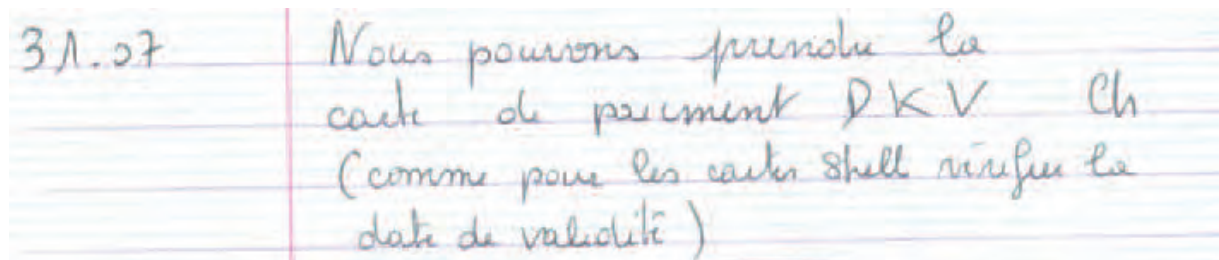 31.07 Nous pouvons prendre la
carte de paiement DKV Ch
(comme pour les cartes Shell vérifier la
date de validité)